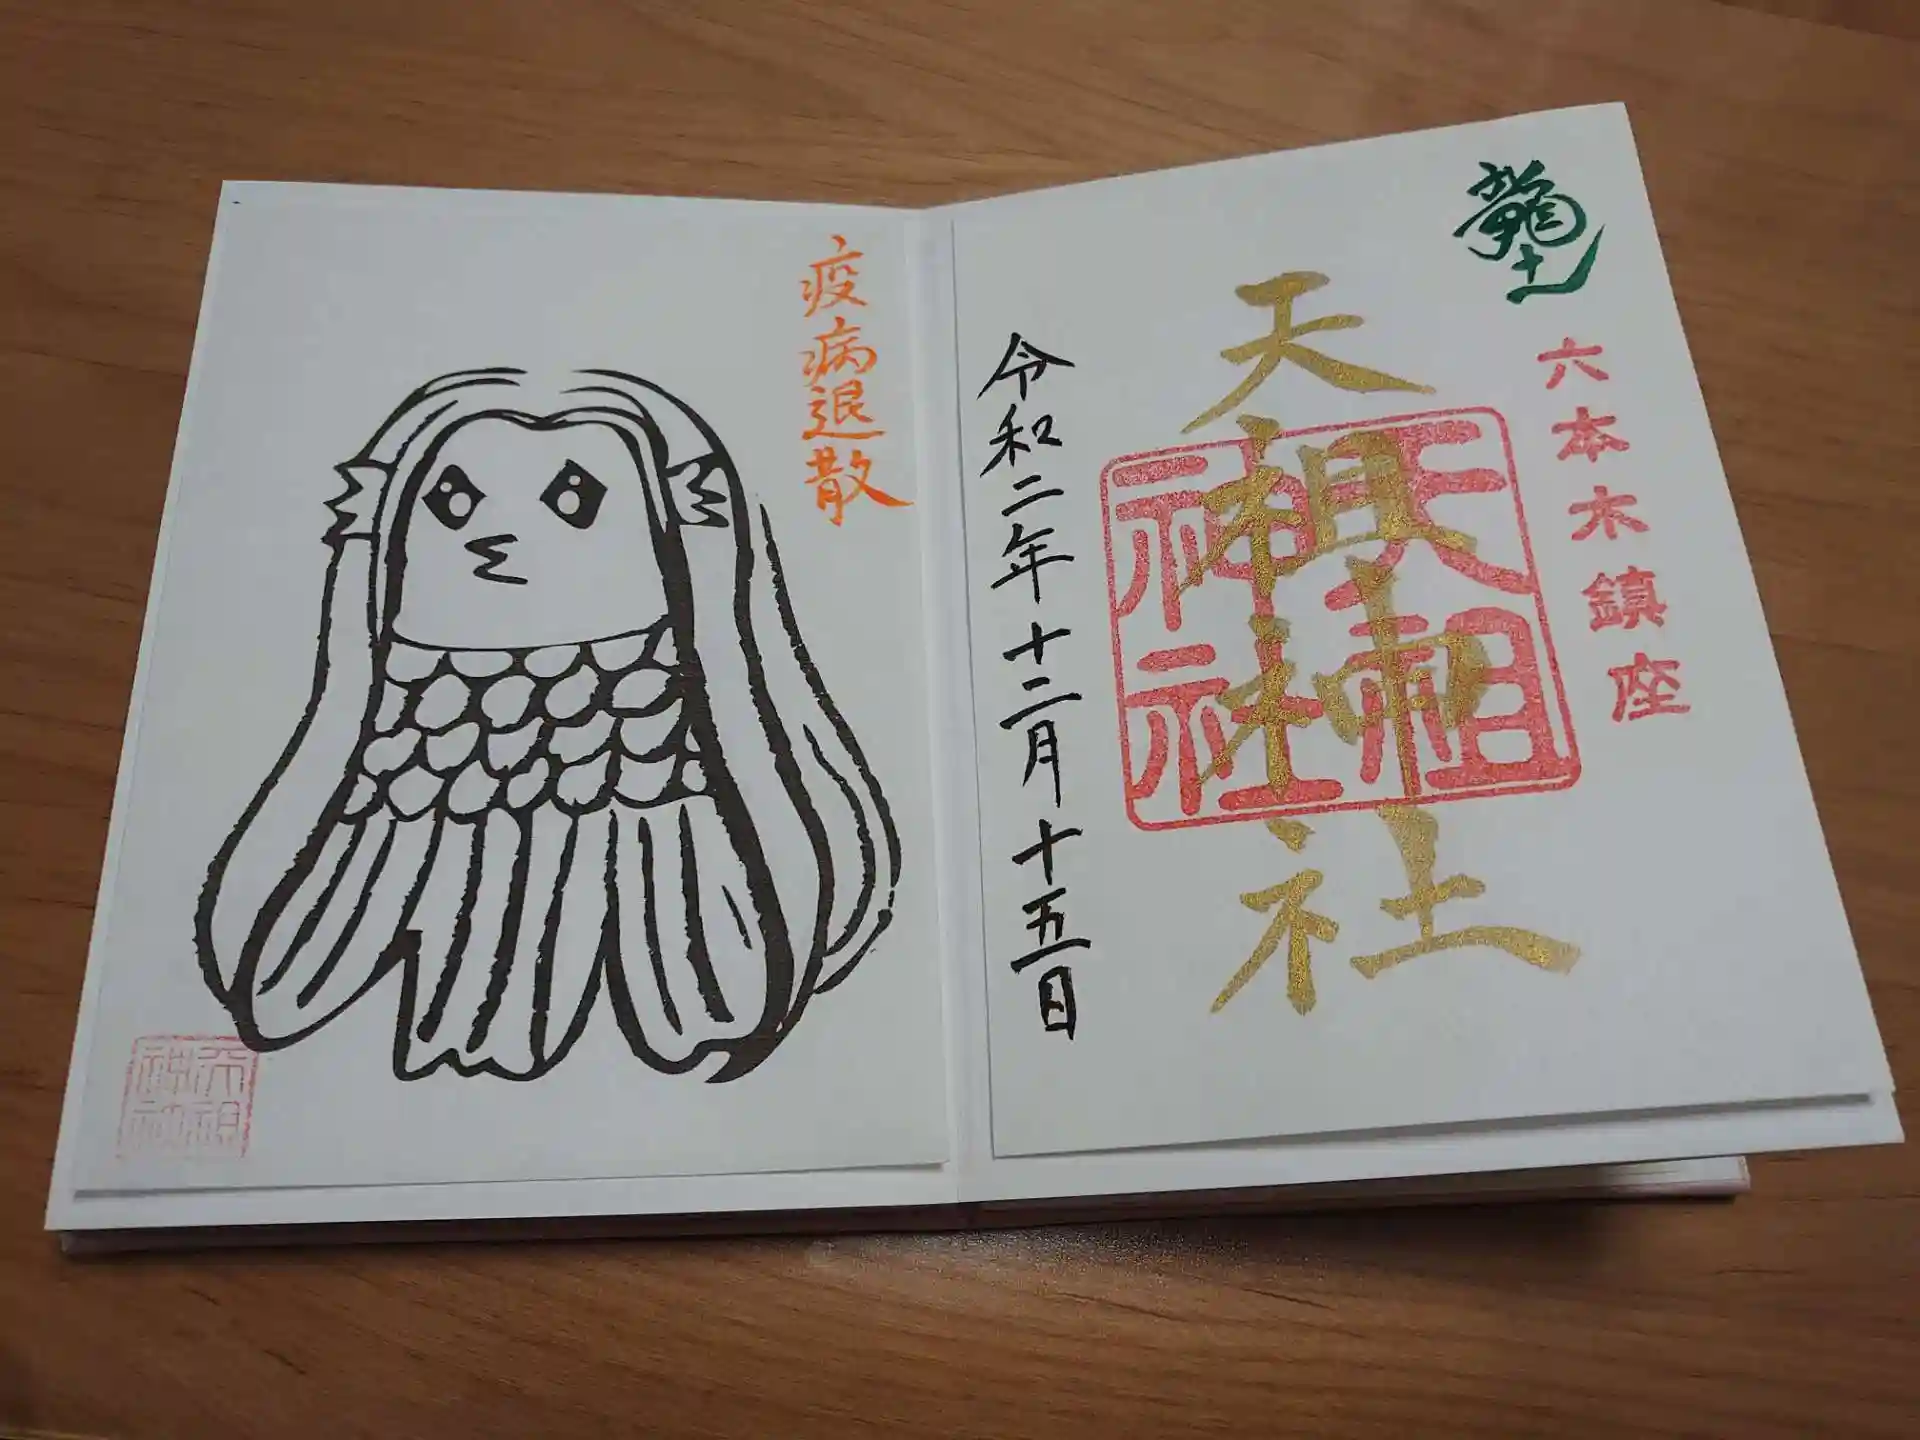 龍土
六本木鎮座
天祖神社
天祖
神社
令和二年十二月十五日
疫病退散
天祖
神社